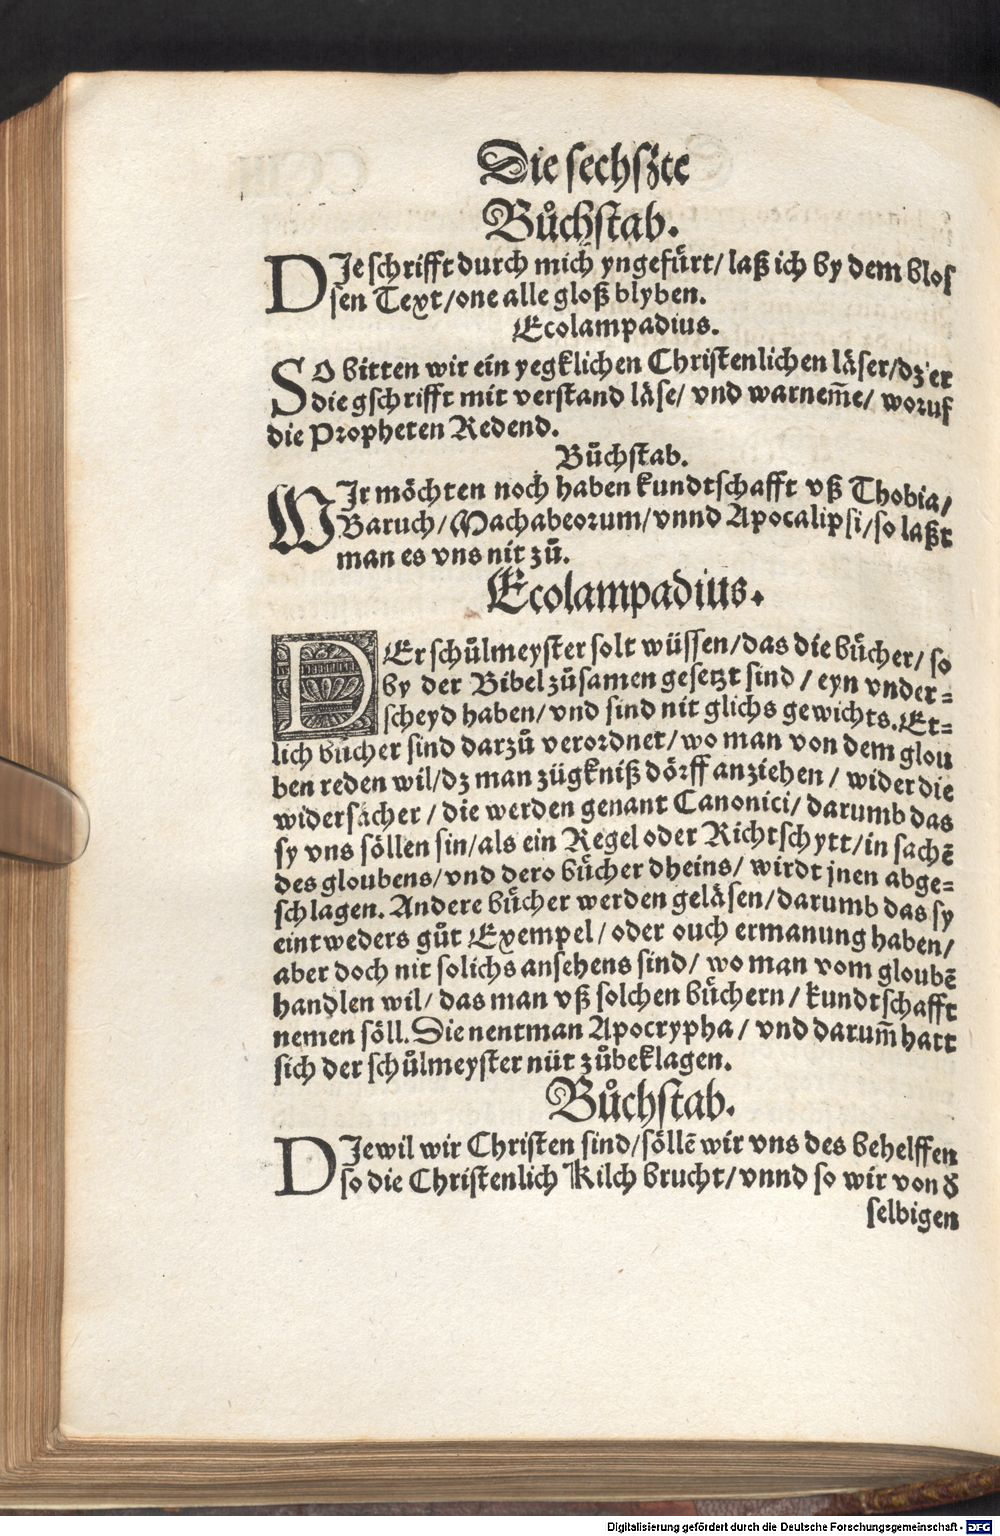 Die sechßte
Bůchstab.
DJe schrifft durch mich yngefürt/ laß ich by dem blos
sen Text/ one alle gloß blyben.
Ecolampadius.
SO bitten wir ein yegklichen Christenlichen läser/ dz er
die gschrifft mit verstand läse/ vnd warnem̃e/ woruf
die Propheten Redend.
Bůchstab.
WJr möchten noch haben kundtschafft vß Thobia/
Baruch/ Machabeorum/ vnnd Apocalipsi/ so laßt
man es vns nit zů.
Ecolampadius.
DEr schůlmeyster solt wüssen/ das die bücher/ so
by der Bibel zůsamen gesetzt sind / eyn vnder=
scheyd haben/ vnd sind nit glichs gewichts. Et=
lich bücher sind darzů verordnet/ wo man von dem glou
ben reden wil/ dz man zügkniß dörff anziehen / wider die
widersächer / die werden genant Canonici/ darumb das
sy vns söllen sin/ als ein Regel oder Richtschytt/ in sachẽ
des gloubens/ vnd dero bücher dheins/ wirdt jnen abge=
schlagen. Andere bücher werden geläsen/ darumb das sy
eintweders gůt Exempel/ oder ouch ermanung haben/
aber doch nit solichs ansehens sind/ wo man vom gloubẽ
handlen wil/ das man vß solchen büchern / kundtschafft
nemen söll. Die nentman Apocrypha/ vnd darum̃ hatt
sich der schůlmeyster nüt zůbeklagen.
Bůchstab.
DJewil wir Christen sind/ söllẽ wir vns des behelffen
so die Christenlich Kilch brucht/ vnnd so wir von d̕
selbigen
Digitalisierung gefördert durch die Deutsche Forschungsgemeinschaft - DFG